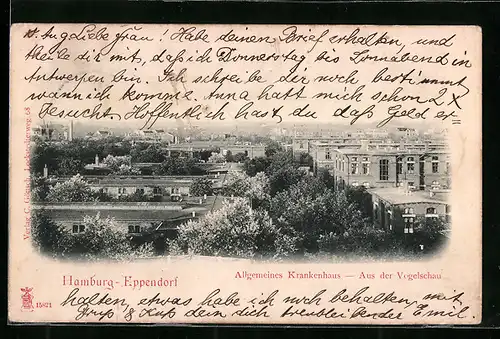 10. Aug Liebe Frau! Habe deinen Brief erhalten, und
theile dir mit, daß ich Donnerstag bis Sonnabend in
Antwerpen bin. Ich schreibe dir noch bestimmt
wann ich komme. Anna hatt mich schon 2x
besucht. Hoffentlich hast du daß Geld er
Verlag C. Griese, Hamburg
Hamburg-Eppendorf
Allgemeines Krankenhaus — Aus der Vogelschau
15821
halten, etwas habe ich noch behalten, mit
Gruß & Kuß dein dich treuliebender Emil.